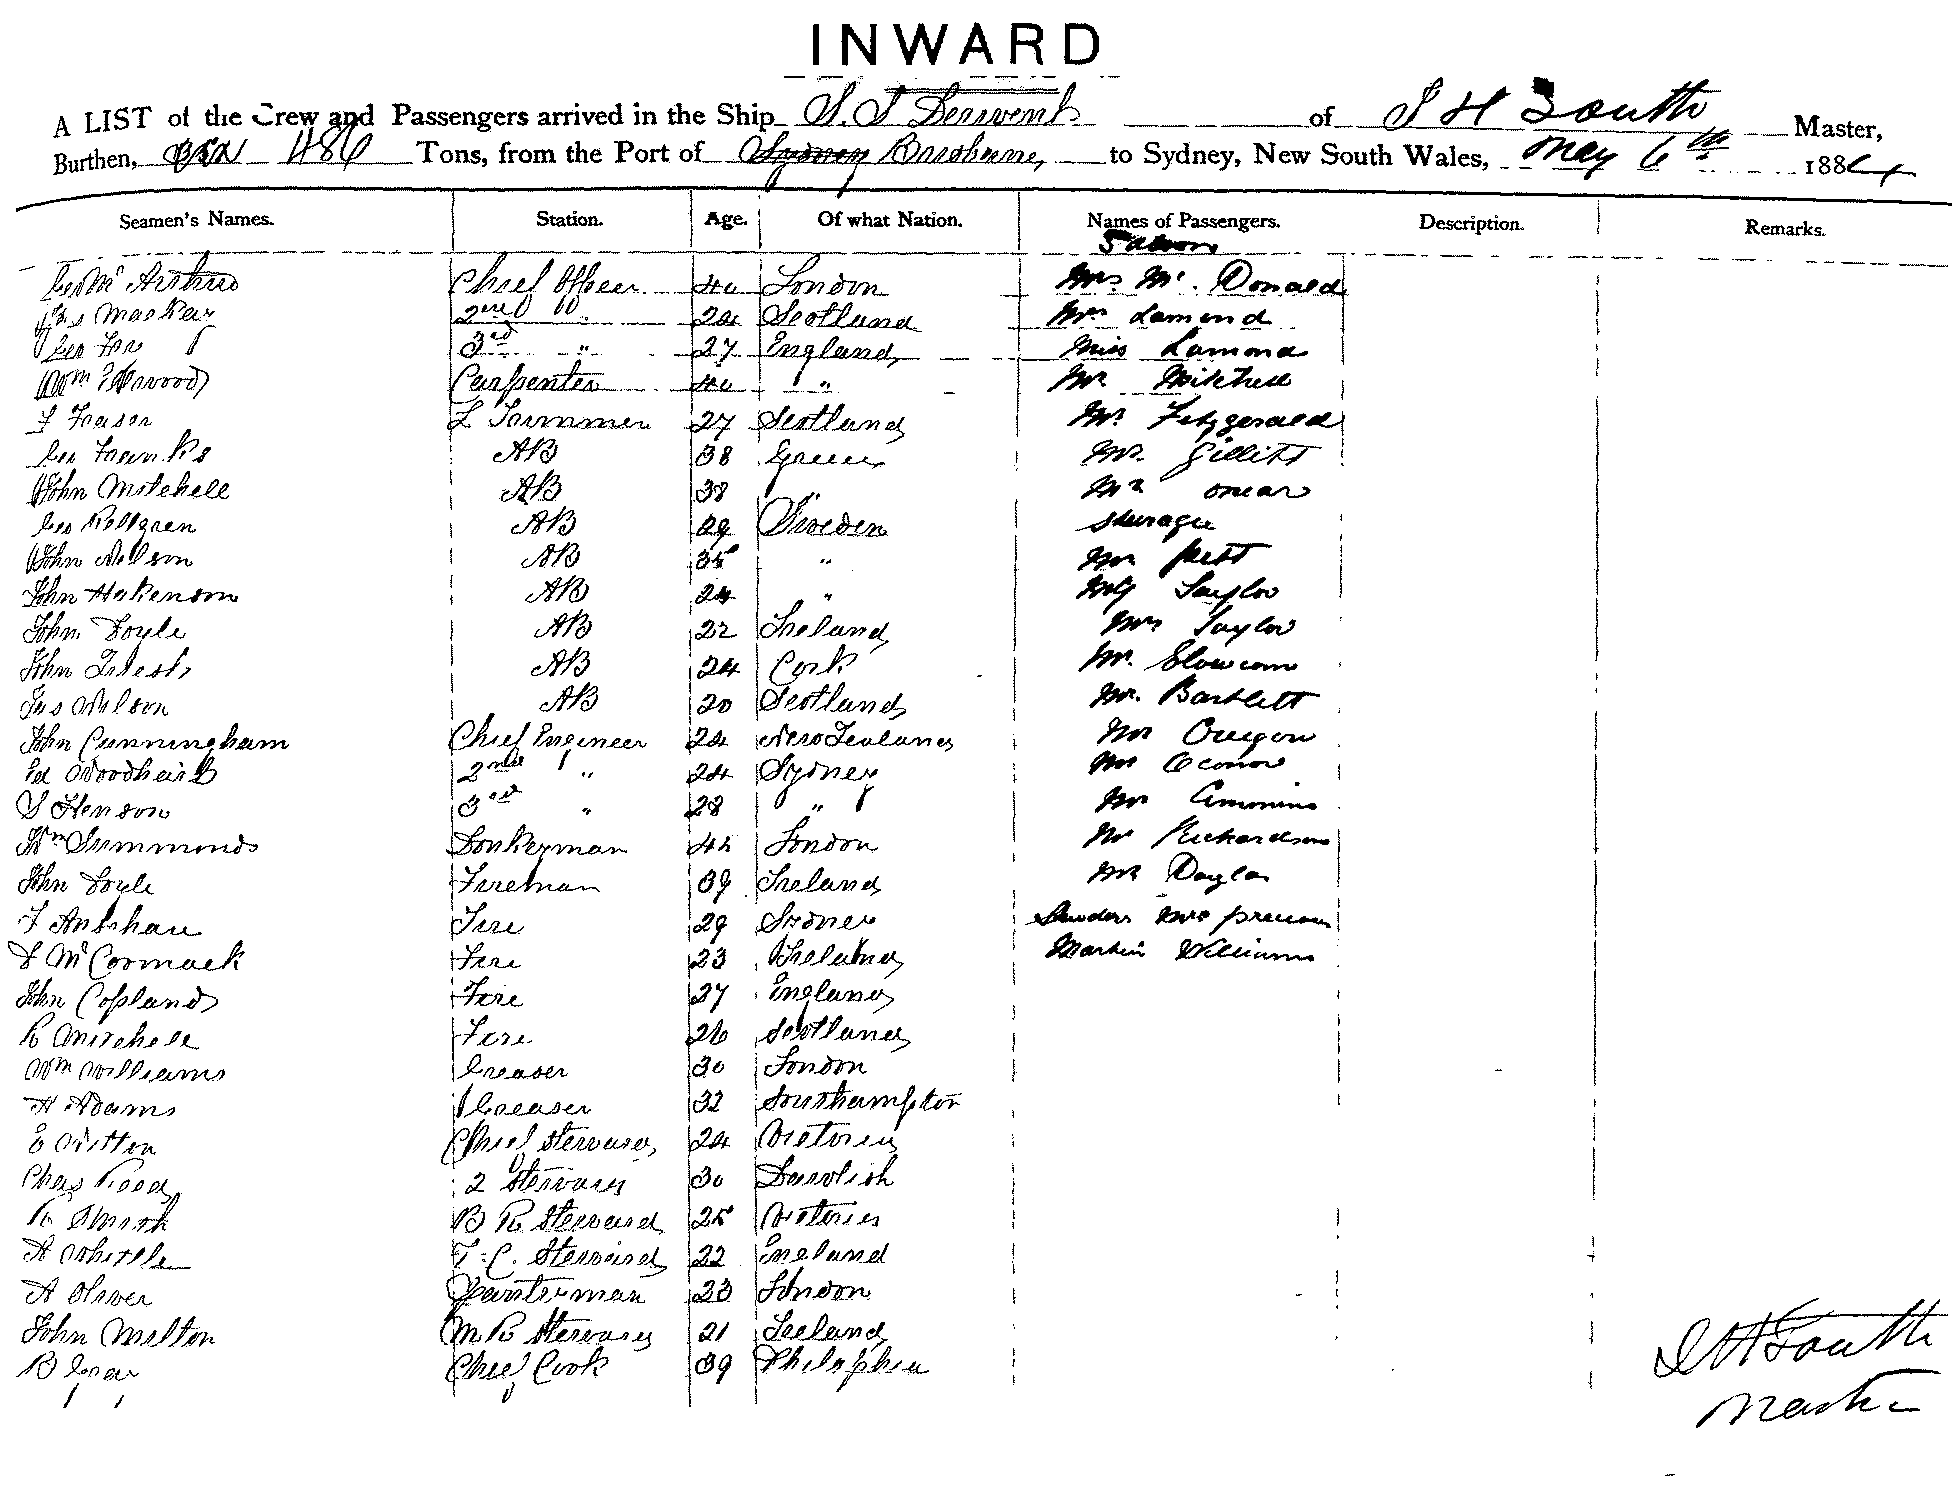 INWARD
A LIST of the Crew and Passengers arrived in the Ship S. S Derwent of J H South Master,
Burthen, 486 Tons, from the Port of Sydney Brisbane, to Sydney, New South Wales, May 6th 1884
Seamen's Names. Station. Age. Of what Nation. Names of Passengers. Description. Remarks.
Saloon
Geo Mc Arthur Chief Officer 40 London Mrs Mc. Donald
Jas Mackay 2nd O. 24 Scotland Mrs Lamond
Geo Fox 3rd " 27 England Miss Lamond
Wm Carpenter 40 " Mr Mitchell
J Fraser L Trimmer 27 Scotland Mr. Fitzgerald
Geo Franks AB 38 Greece Mr. Gillitt
John Mitchell AB 38 " Mr
Geo AB 29 Sweden Steerage
John Nilson AB 35 " Mr Pett
John Hakenson AB 24 " Mr Taylor
John Doyle AB 22 Ireland Mrs Taylor
John AB 24 Cork Mr. Slowcom
Jas Wilson AB 20 Scotland Mr. Bartlett
John Cunningham Chief Engineer 24 New Zealand Mr Oregon
Ed Woodhead 2nd " 24 Sydney Mr Oconor
S Henson 3rd " 28 " Mr
Wm Summonds Donkeyman 42 London Mr Richardson
John Doyle Fireman 39 Ireland Mr
F Fire 29 Sydney
J McCormack Fire 23 Ireland Martin Williams
John Copland Fire 27 England
R Mitchell Fire 26 Scotland
Wm Williams Greaser 30 London
H Adams Greaser 32 Southampton
E Witton Chief Steward 24 Victoria
Chas Reed 2 Steward 30 Dawlish
R Smith B R Steward 25 Victoria
A Whittle F. C. Steward 22 England
A Oliver Panterman 23 London
John Milton M R Steward 21 Ireland
B Gray Chief Cook 39 Philaphia
J H South
Master